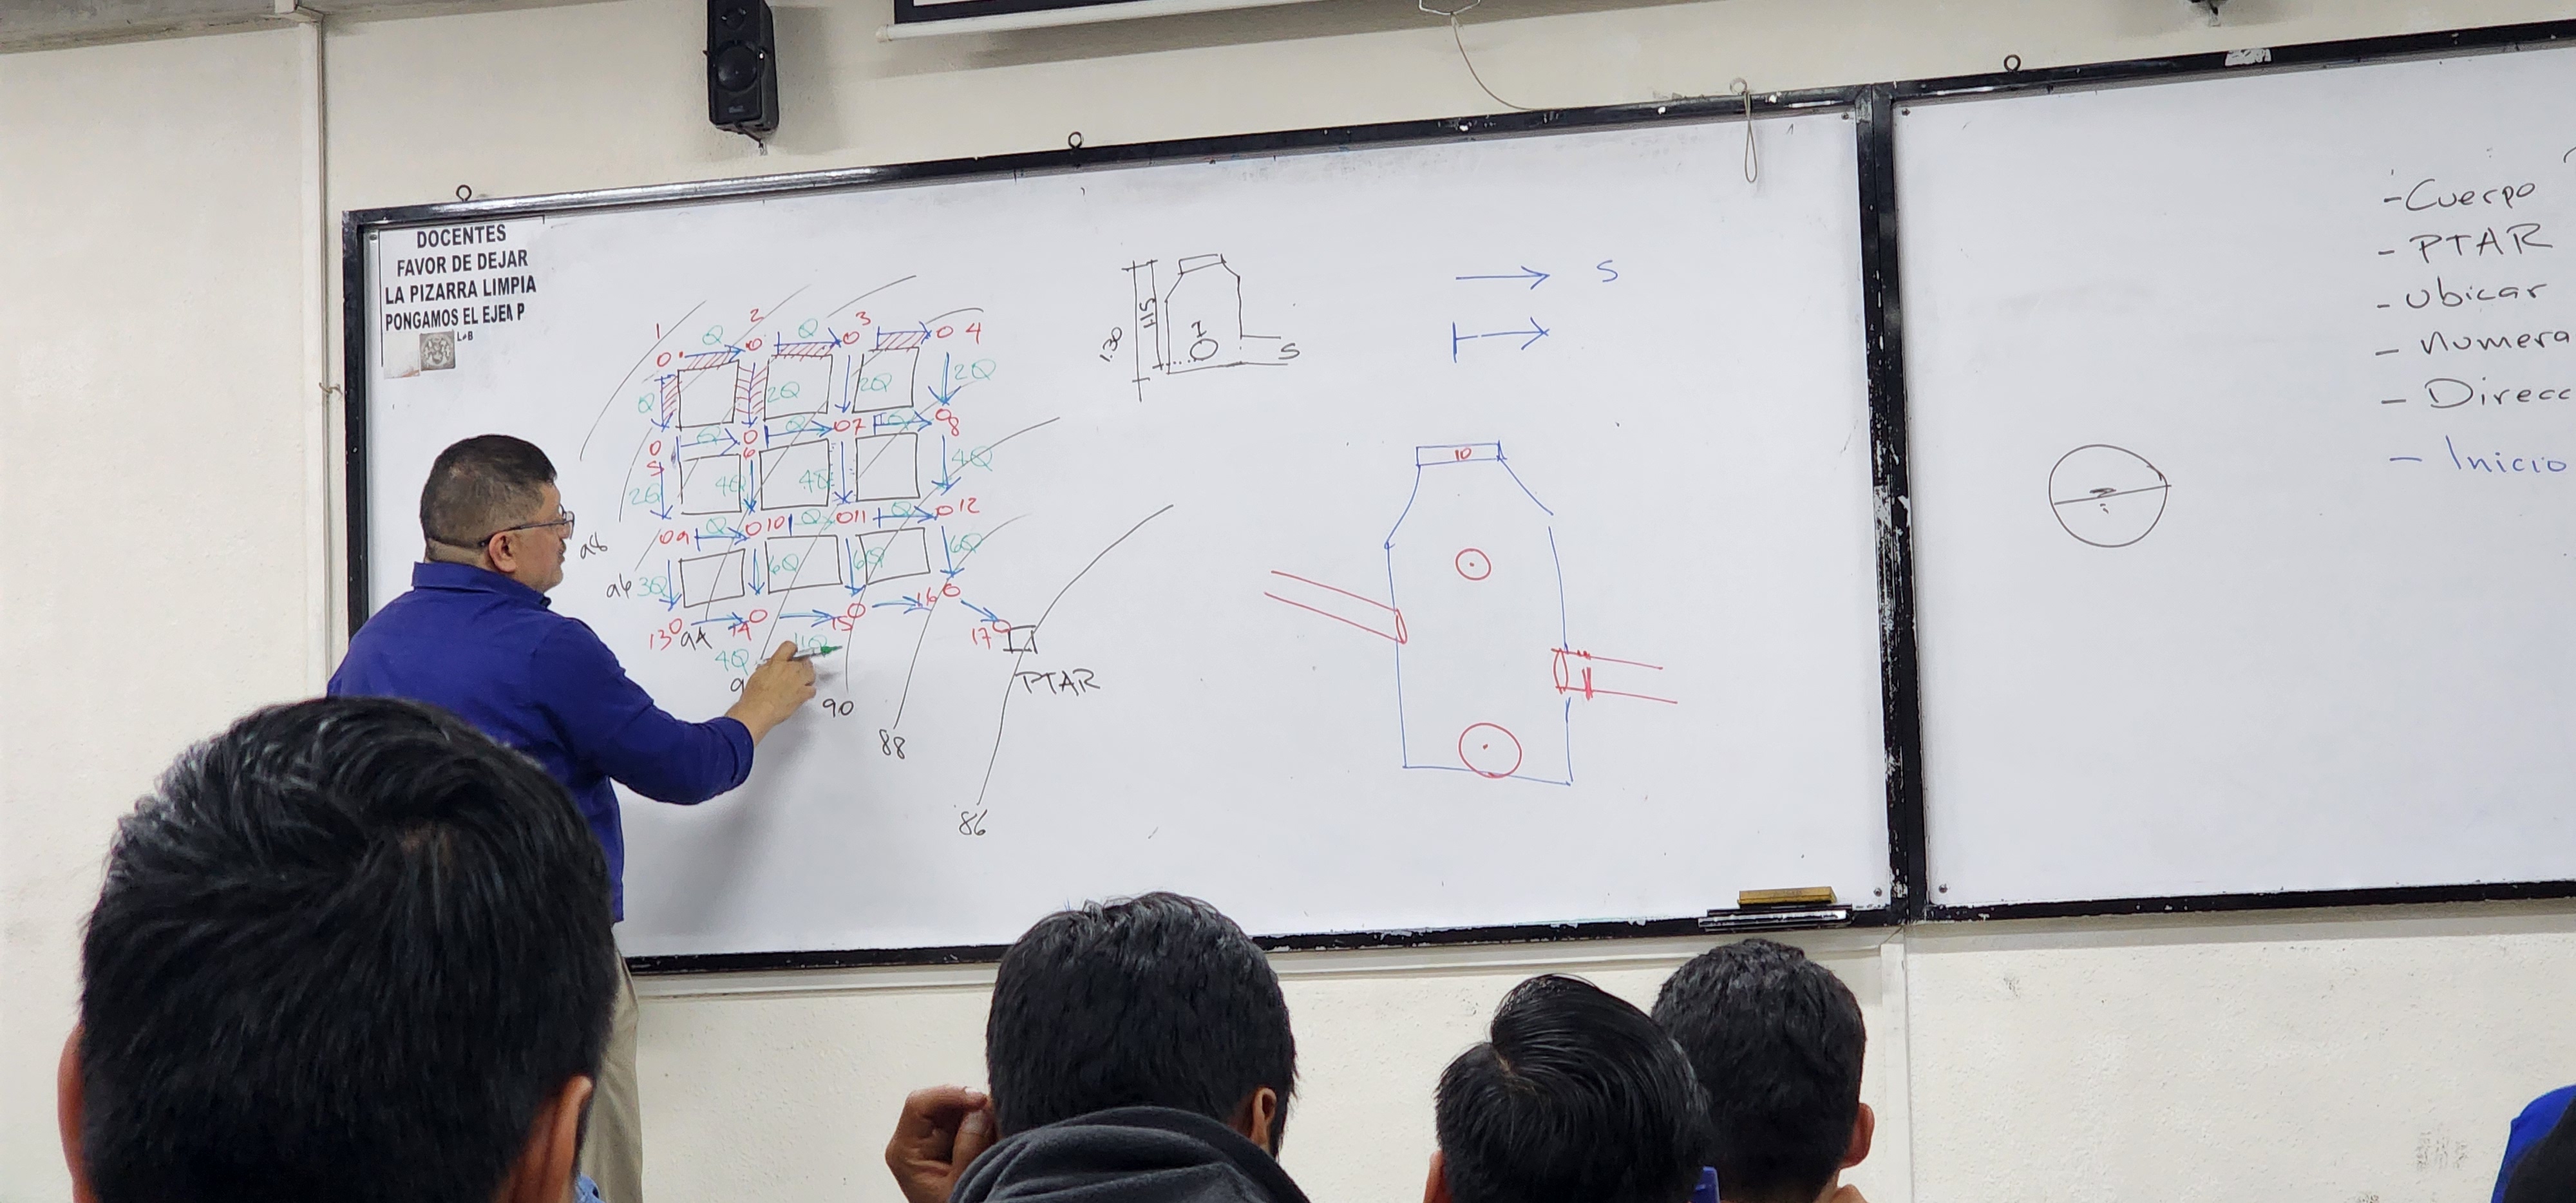 DOCENTES
FAVOR DE DEJAR
LA PIZARRA LIMPIA
PONGAMOS EL EJEMP
1 2 3 4
Q Q
Q 2Q 2Q 2Q
Q Q Q
5 6 7 8
2Q 4Q 4Q 4Q
Q Q Q
9 10 11 12
3Q 6Q 6Q 6Q
13 14 15 16 17
4Q 11Q
98
96
94
90
88
86
PTAR
1.30
1.15
I
S
S
10
- Cuerpo
- PTAR
- Ubicar
- Numera
- Direcc
- Inicio